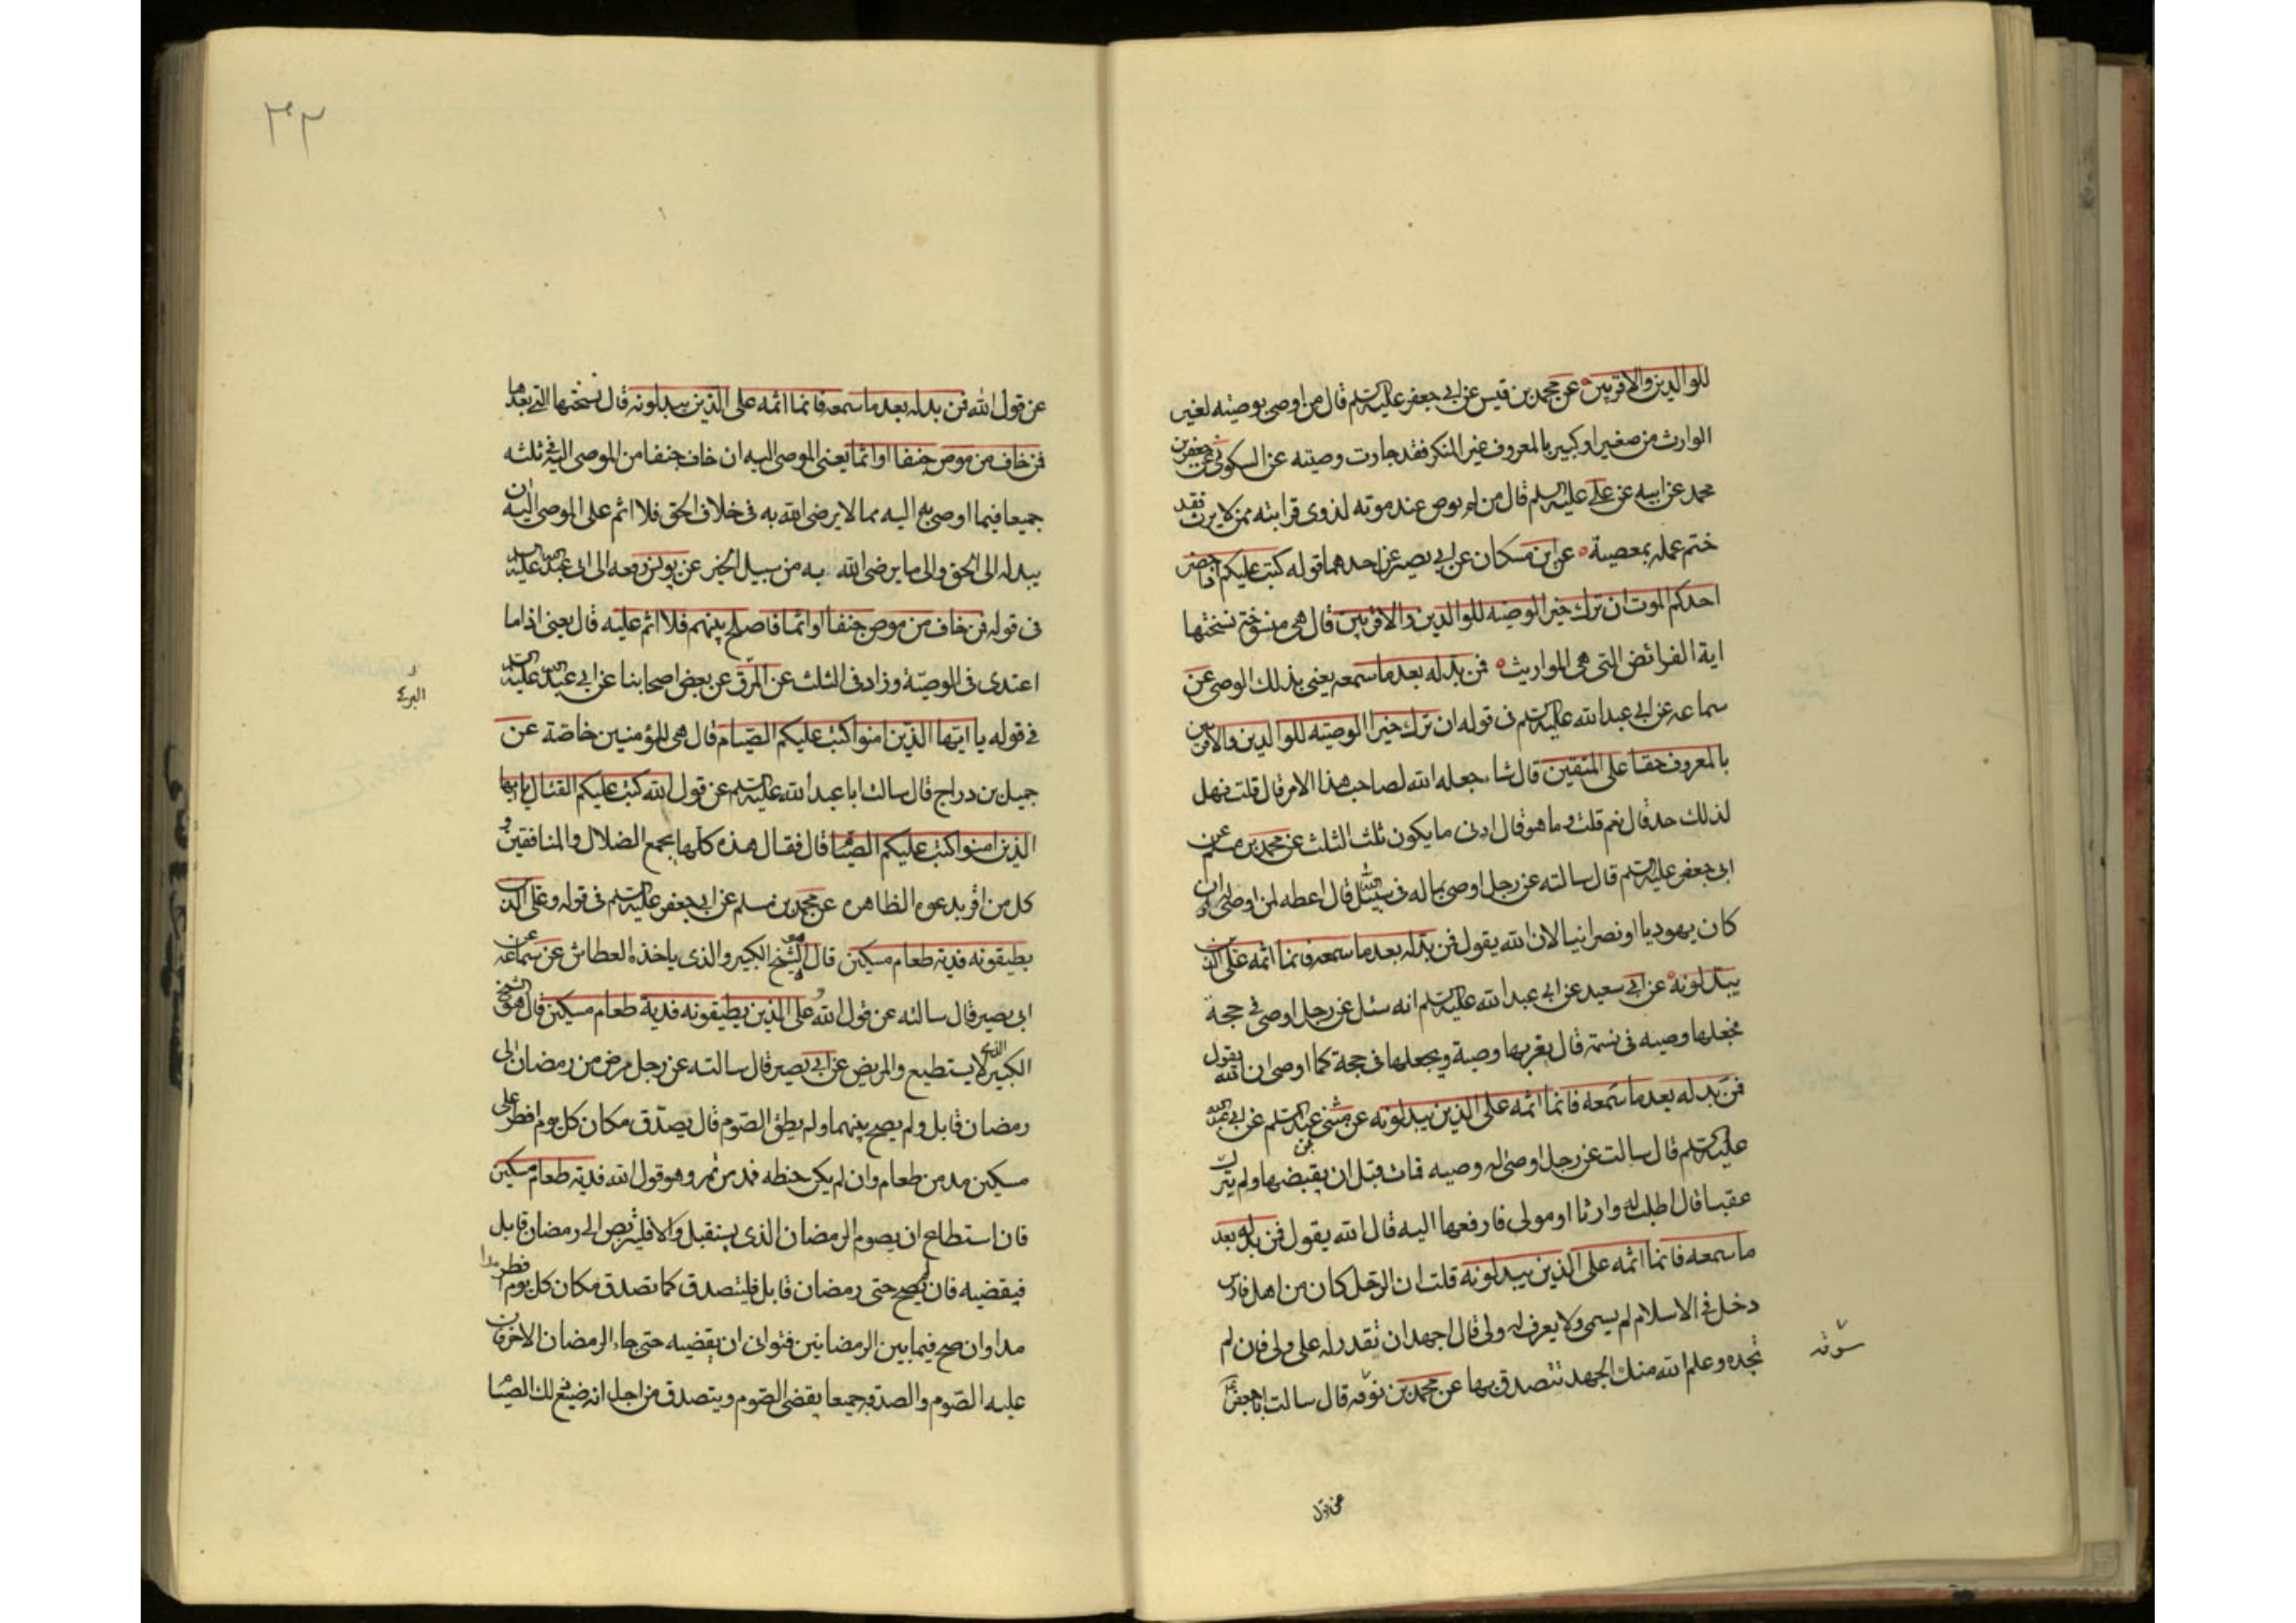 للوالدين والاقربين عن محمد بن قيس عن ابي جعفر عليه السلم قال من اوصى بوصيته لغير
الوارث من صغير او كبير بالمعروف غير المنكر فقد جازت وصيته عن السكوني عن جعفر بن
محمد عن ابيه عن علي عليه السلم قال من لم يوص عند موته لذوي قرابته ممن لا يرث فقد
ختم عمله بمعصية عن ابن مسكان عن ابي بصير عن احدهما قوله كتب عليكم اذا حضر
احدكم الموت ان ترك خيرا الوصيه للوالدين والاقربين قال هى منسوخة نسختها
اية الفرائض التى هى المواريث فمن بدله بعد ما سمعه يعني بذلك الوصي عن
سماعه عن ابي عبد الله عليه السلم في قوله ان ترك خيرا الوصيته للوالدين والاقربين
بالمعروف حقا على المتقين قال شاء جعله الله لصاحب هذا الامر قال قلت فهل
لذلك حد قال نعم قلت وما هو قال ادنى ما يكون ثلث الثلث عن محمد بن مسلم عن
ابى جعفر عليه السلم قال سالته عن رجل اوصى بماله في سبيل الله قال اعطه لمن اوصى له وان
كان يهوديا او نصرانيا لان الله يقول فمن بدله بعد ما سمعه فانما اثمه على الذين
يبدلونه عن ابي سعيد عن ابي عبد الله عليه السلم انه سئل عن رجل اوصى في حجة
فجعلها وصيه في نسمة قال يغرمها وصية ويجعلها في حجة كما اوصى ان الله يقول
فمن بدله بعد ما سمعه فانما اثمه على الذين يبدلونه عن مثنى بن عبد السلم عن ابي عبد الله
عليه السلم قال سالت عن رجل اوصى له وصيه فمات قبل ان يقبضها ولم يترك
عقبا قال اطلب له وارثا او مولى فارفعها اليه قال الله يقول فمن بدله بعد
ما سمعه فانما اثمه على الذين يبدلونه قلت ان الرجل كان من اهل فارس
دخل في الاسلام لم يسمى ولا يعرف له ولى قال اجهد ان تقدر له على ولى فان لم
تجده وعلم الله منك الجهد تتصدق بها عن محمد بن نوقه قال سالت ابا جعفر
سوقه
عن قول
٣٢
عن قول الله فمن بدله بعد ما سمعه فانما اثمه على الذين يبدلونه قال نسختها التي بعدها
فمن خاف من موص جنفا او اثما يعنى الموصى اليه ان خاف جنفا من الموصى اليه في ثلثه
جميعا فيما اوصى به اليه مما لا يرضى الله به في خلاف الحق فلا اثم على الموصى اليه ان
يبدله الى الحق والى ما يرضى الله به من سبيل الخير عن يونس رفعه الى ابى عبد الله عليه السلم
فى قوله فمن خاف من موص جنفا او اثما فاصلح بينهم فلا اثم عليه قال يعنى اذا ما
اعتدى في الوصية وزاد فى الثلث عن المرقي عن بعض اصحابنا عن ابي عبد الله عليه السلم
في قوله يا ايها الذين امنوا كتب عليكم الصيام قال هى للمؤمنين خاصة عن
جميل بن دراج قال سالت ابا عبد الله عليه السلم عن قول الله كتب عليكم القتال يا ايها
الذين امنوا كتب عليكم الصيام قال فقال هذه كلها يجمع الضلال والمنافقين و
كل من اقر بدعوه الظاهره عن محمد بن مسلم عن ابي جعفر عليه السلم فى قوله وعلى الذين
يطيقونه فدية طعام مسكين قال هو الشيخ الكبير والذى ياخذه العطاش عن سماعه عن
ابى بصير قال سالته عن قول الله وعلى الذين يطيقونه فدية طعام مسكين قال هو الشيخ
الكبير الذي لا يستطيع والمريض عن ابي بصير قال سالته عن رجل مرض من رمضان الى
رمضان قابل ولم يصح بينهما ولم يطق الصوم قال يصدق مكان كل يوم افطر على
مسكين مد من طعام وان لم يكن حنطه فمد من تمر وهو قول الله فدية طعام مسكين
فان استطاع ان يصوم الرمضان الذى يستقبل والا فليتربص الى رمضان قابل
فيقضيه فان لم يصح حتى رمضان قابل فليتصدق كما تصدق مكان كل يوم افطر مدا
مدا وان صح فيما بين الرمضانين فتوانى ان يقضيه حتى جاء الرمضان الاخر فان
عليه الصوم والصدقه جميعا يقضى الصوم ويتصدق من اجل انه ضيع ذلك الصيام